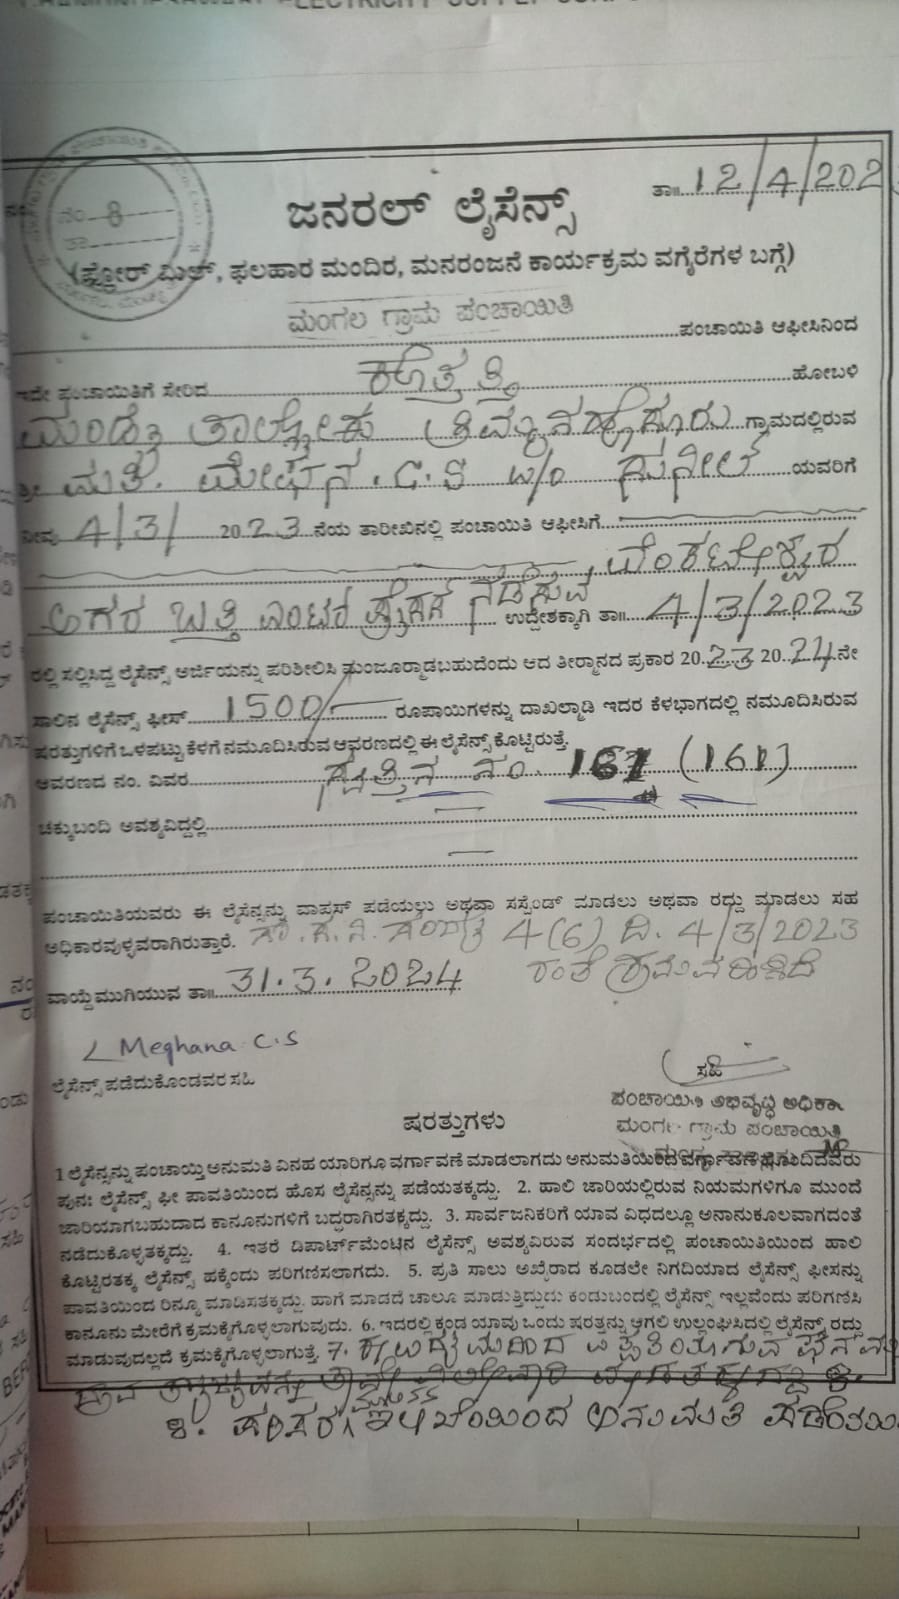 ನಂ. 8
ತಾ.
ತಾ॥ 12/4/202
ಜನರಲ್ ಲೈಸೆನ್ಸ್
(ಫ್ಲೋರ್ ಮಿಲ್, ಫಲಹಾರ ಮಂದಿರ, ಮನರಂಜನೆ ಕಾರ್ಯಕ್ರಮ ವಗೈರೆಗಳ ಬಗ್ಗೆ)
ಮಂಗಲ ಗ್ರಾಮ ಪಂಚಾಯಿತಿ
ಪಂಚಾಯಿತಿ ಆಫೀಸಿನಿಂದ
ಇದೇ ಪಂಚಾಯಿತಿಗೆ ಸೇರಿದ ಕೊತ್ತತ್ತಿ ಹೋಬಳಿ
ಮಂಡ್ಯ ತಾಲ್ಲೋಕು ಗ್ರಾಮದಲ್ಲಿರುವ
ಶ್ರೀ ಮತಿ. ಮೇಘನ. C.S w/o ಸುನೀಲ್ ಯವರಿಗೆ
ನೀವು 4/3/ 2023 ನೆಯ ತಾರೀಖಿನಲ್ಲಿ ಪಂಚಾಯಿತಿ ಆಫೀಸಿಗೆ
ವೆಂಕಟೇಶ್ವರ
ಅಗರ ಬತ್ತಿ ಎಂಟರ್ ಪ್ರೈಸಸ್ ನಡೆಸುವ ಉದ್ದೇಶಕ್ಕಾಗಿ ತಾ॥ 4/3/2023
ರಲ್ಲಿ ಸಲ್ಲಿಸಿದ್ದ ಲೈಸೆನ್ಸ್ ಅರ್ಜಿಯನ್ನು ಪರಿಶೀಲಿಸಿ ಮಂಜೂರ್ಮಾಡಬಹುದೆಂದು ಆದ ತೀರ್ಮಾನದ ಪ್ರಕಾರ 2023 2024 ನೇ
ಸಾಲಿನ ಲೈಸೆನ್ಸ್ ಫೀಸ್ 1500/- ರೂಪಾಯಿಗಳನ್ನು ದಾಖಲ್ಮಾಡಿ ಇದರ ಕೆಳಭಾಗದಲ್ಲಿ ನಮೂದಿಸಿರುವ
ಷರತ್ತುಗಳಿಗೆ ಒಳಪಟ್ಟು ಕೆಳಗೆ ನಮೂದಿಸಿರುವ ಆವರಣದಲ್ಲಿ ಈ ಲೈಸೆನ್ಸ್ ಕೊಟ್ಟಿರುತ್ತೆ.
ಆವರಣದ ನಂ. ವಿವರ ಸ್ವತ್ತಿನ ನಂ. 161 (161)
ಚಕ್ಕುಬಂದಿ ಅವಶ್ಯವಿದ್ದಲ್ಲಿ
ಪಂಚಾಯಿತಿಯವರು ಈ ಲೈಸೆನ್ಸನ್ನು ವಾಪ್ಸಸ್ ಪಡೆಯಲ್ಲು ಅಥವಾ ಸಸ್ಪೆಂಡ್ ಮಾಡಲು ಅಥವಾ ರದ್ದು ಮಾಡಲು ಸಹ
ಅಧಿಕಾರವುಳ್ಳವರಾಗಿರುತ್ತಾರೆ. 4(6) ದಿ. 4/3/2023
ವಾಯ್ದೆ ಮುಗಿಯುವ ತಾ॥ 31.3.2024 ರಂತೆ
Meghana C.S
ಲೈಸೆನ್ಸ್ ಪಡೆದುಕೊಂಡವರ ಸಹಿ
ಸಹಿ
ಪಂಚಾಯಿತಿ ಅಭಿವೃದ್ಧಿ ಅಧಿಕಾ
ಮಂಗಲ ಗ್ರಾಮ ಪಂಚಾಯಿತಿ
ಷರತ್ತುಗಳು
1 ಲೈಸೆನ್ಸನ್ನು ಪಂಚಾಯ್ತಿ ಅನುಮತಿ ವಿನಹ ಯಾರಿಗೂ ವರ್ಗಾವಣೆ ಮಾಡಲಾಗದು ಅನುಮತಿಯಿಂದ ವರ್ಗಾವಣೆ ಹೊಂದಿದವರು
ಪುನಃ ಲೈಸೆನ್ಸ್ ಫೀ ಪಾವತಿಯಿಂದ ಹೊಸ ಲೈಸೆನ್ಸನ್ನು ಪಡೆಯತಕ್ಕದ್ದು. 2. ಹಾಲಿ ಜಾರಿಯಲ್ಲಿರುವ ನಿಯಮಗಳಿಗೂ ಮುಂದೆ
ಜಾರಿಯಾಗಬಹುದಾದ ಕಾನೂನುಗಳಿಗೆ ಬದ್ಧರಾಗಿರತಕ್ಕದ್ದು. 3. ಸಾರ್ವಜನಿಕರಿಗೆ ಯಾವ ವಿಧದಲ್ಲೂ ಅನಾನುಕೂಲವಾಗದಂತೆ
ನಡೆದುಕೊಳ್ಳತಕ್ಕದ್ದು. 4. ಇತರೆ ಡಿಪಾರ್ಟ್‌ಮೆಂಟಿನ ಲೈಸೆನ್ಸ್ ಅವಶ್ಯವಿರುವ ಸಂದರ್ಭದಲ್ಲಿ ಪಂಚಾಯಿತಿಯಿಂದ ಹಾಲಿ
ಕೊಟ್ಟಿರತಕ್ಕ ಲೈಸೆನ್ಸ್ ಹಕ್ಕೆಂದು ಪರಿಗಣಿಸಲಾಗದು. 5. ಪ್ರತಿ ಸಾಲು ಅಖೈರಾದ ಕೂಡಲೇ ನಿಗದಿಯಾದ ಲೈಸೆನ್ಸ್ ಫೀಸನ್ನು
ಪಾವತಿಯಿಂದ ರಿನ್ಯೂ ಮಾಡಿಸತಕ್ಕದ್ದು. ಹಾಗೆ ಮಾಡದೆ ಚಾಲೂ ಮಾಡುತ್ತಿದ್ದುದು ಕಂಡುಬಂದಲ್ಲಿ ಲೈಸೆನ್ಸ್ ಇಲ್ಲವೆಂದು ಪರಿಗಣಿಸಿ
ಕಾನೂನು ಮೇರೆಗೆ ಕ್ರಮಕೈಗೊಳ್ಳಲಾಗುವುದು. 6. ಇದರಲ್ಲಿ ಕಂಡ ಯಾವು ಒಂದು ಷರತ್ತನ್ನು ಆಗಲಿ ಉಲ್ಲಂಘಿಸಿದಲ್ಲಿ ಲೈಸೆನ್ಸ್ ರದ್ದು
ಮಾಡುವುದಲ್ಲದೆ ಕ್ರಮಕೈಗೊಳ್ಳಲಾಗುತ್ತೆ. 7.
8. ಪರಿಸರ ಇಲಾಖೆಯಿಂದ ಅನುಮತಿ